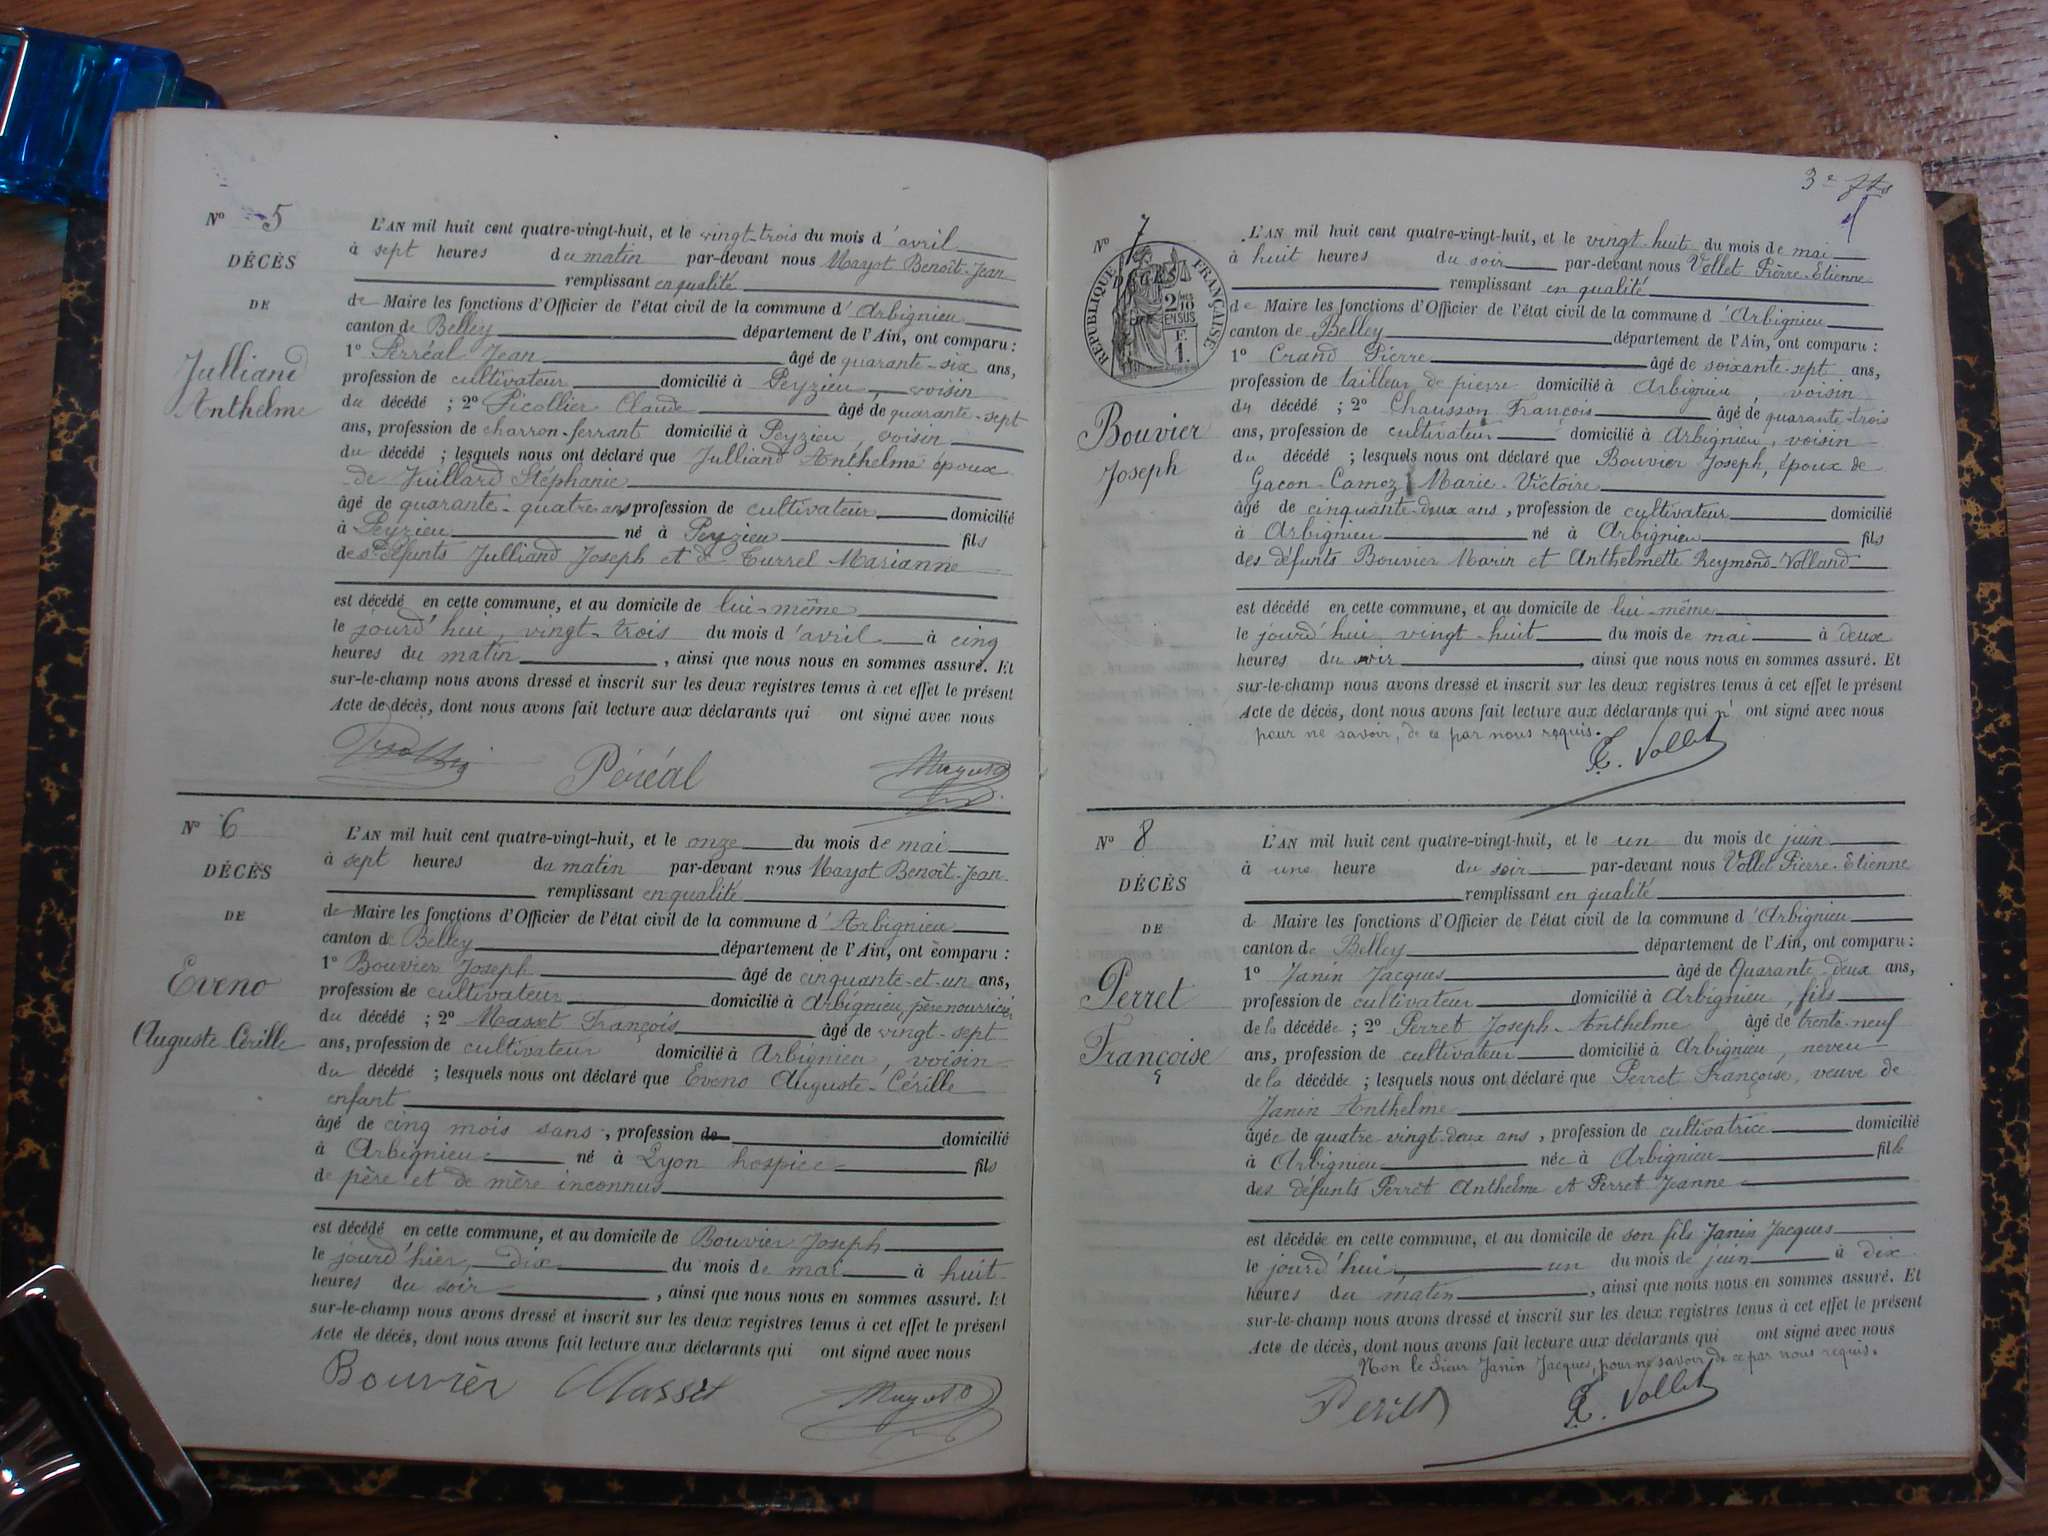 No 5
DÉCÈS
DE
Julliand
Anthelme
L'AN mil huit cent quatre-vingt-huit, et le vingt-trois du mois d'avril
à sept heures du matin par-devant nous Mayot Benoît-Jean
remplissant en qualité
de Maire les fonctions d'Officier de l'état civil de la commune d'Arbignieu
canton de Belley département de l'Ain, ont comparu :
1º Perréal Jean âgé de quarante-six ans,
profession de cultivateur domicilié à Peyzieu, voisin
du décédé ; 2º Picollier Claude âgé de quarante-sept
ans, profession de charron-ferrant domicilié à Peyzieu, voisin
du décédé ; lesquels nous ont déclaré que Julliand Anthelme époux
de Vuillard Stéphanie
âgé de quarante-quatre ans profession de cultivateur domicilié
à Peyzieu né à Peyzieu fils
des défunts Julliand Joseph et de Turrel Marianne
est décédé en cette commune, et au domicile de lui-même
le jourd'hui, vingt-trois du mois d'avril à cinq
heures du matin, ainsi que nous nous en sommes assuré. Et
sur-le-champ nous avons dressé et inscrit sur les deux registres tenus à cet effet le présent
Acte de décès, dont nous avons fait lecture aux déclarants qui ont signé avec nous
Péréal
No 6
DÉCÈS
DE
Eveno
Auguste-Cérille
L'AN mil huit cent quatre-vingt-huit, et le onze du mois de mai
à sept heures du matin par-devant nous Mayot Benoît-Jean
remplissant en qualité
de Maire les fonctions d'Officier de l'état civil de la commune d'Arbignieu
canton de Belley département de l'Ain, ont comparu :
1º Bouvier Joseph âgé de cinquante-et-un ans,
profession de cultivateur domicilié à Arbignieu, père nourricier
du décédé ; 2º Masset François âgé de vingt-sept
ans, profession de cultivateur domicilié à Arbignieu, voisin
du décédé ; lesquels nous ont déclaré que Eveno Auguste-Cérille
enfant
âgé de cinq mois sans, profession de domicilié
à Arbignieu né à Lyon hospice fils
de père et de mère inconnus
est décédé en cette commune, et au domicile de Bouvier Joseph
le jourd'hier, dix du mois de mai à huit
heures du soir, ainsi que nous nous en sommes assuré. Et
sur-le-champ nous avons dressé et inscrit sur les deux registres tenus à cet effet le présent
Acte de décès, dont nous avons fait lecture aux déclarants qui ont signé avec nous
Bouvier Masset
3e
No 7
RÉPUBLIQUE FRANÇAISE
2/10 EN SUS
F. 1.
Bouvier
Joseph
L'AN mil huit cent quatre-vingt-huit, et le vingt-huit du mois de mai
à huit heures du soir par-devant nous Vollet Pierre-Etienne
remplissant en qualité
de Maire les fonctions d'Officier de l'état civil de la commune d'Arbignieu
canton de Belley département de l'Ain, ont comparu :
1º Crand Pierre âgé de soixante-sept ans,
profession de tailleur de pierre domicilié à Arbignieu, voisin
du décédé ; 2º Chausson François âgé de quarante-trois
ans, profession de cultivateur domicilié à Arbignieu, voisin
du décédé ; lesquels nous ont déclaré que Bouvier Joseph, époux de
Gacon-Camoz Marie-Victoire
âgé de cinquante-deux ans, profession de cultivateur domicilié
à Arbignieu né à Arbignieu fils
des défunts Bouvier Marin et Anthelmette Reymond-Volland
est décédé en cette commune, et au domicile de lui-même
le jourd'hui vingt-huit du mois de mai à deux
heures du soir, ainsi que nous nous en sommes assuré. Et
sur-le-champ nous avons dressé et inscrit sur les deux registres tenus à cet effet le présent
Acte de décès, dont nous avons fait lecture aux déclarants qui n'ont signé avec nous
pour ne savoir, de ce par nous requis.
E. Vollet
No 8
DÉCÈS
DE
Perret
Françoise
L'AN mil huit cent quatre-vingt-huit, et le un du mois de juin
à une heure du soir par-devant nous Vollet Pierre-Etienne
remplissant en qualité
de Maire les fonctions d'Officier de l'état civil de la commune d'Arbignieu
canton de Belley département de l'Ain, ont comparu :
1º Janin Jacques âgé de Quarante-deux ans,
profession de cultivateur domicilié à Arbignieu, fils
de la décédée ; 2º Perret Joseph-Anthelme âgé de trente-neuf
ans, profession de cultivateur domicilié à Arbignieu, neveu
de la décédée ; lesquels nous ont déclaré que Perret Françoise, veuve de
Janin Anthelme
âgée de quatre-vingt-deux ans, profession de cultivatrice domicilié
à Arbignieu née à Arbignieu fille
des défunts Perret Anthelme et Perret Jeanne
est décédée en cette commune, et au domicile de son fils Janin Jacques
le jourd'hui un du mois de juin à dix
heures du matin, ainsi que nous nous en sommes assuré. Et
sur-le-champ nous avons dressé et inscrit sur les deux registres tenus à cet effet le présent
Acte de décès, dont nous avons fait lecture aux déclarants qui ont signé avec nous
Non le Sieur Janin Jacques, pour ne savoir, de ce par nous requis.
E. Vollet